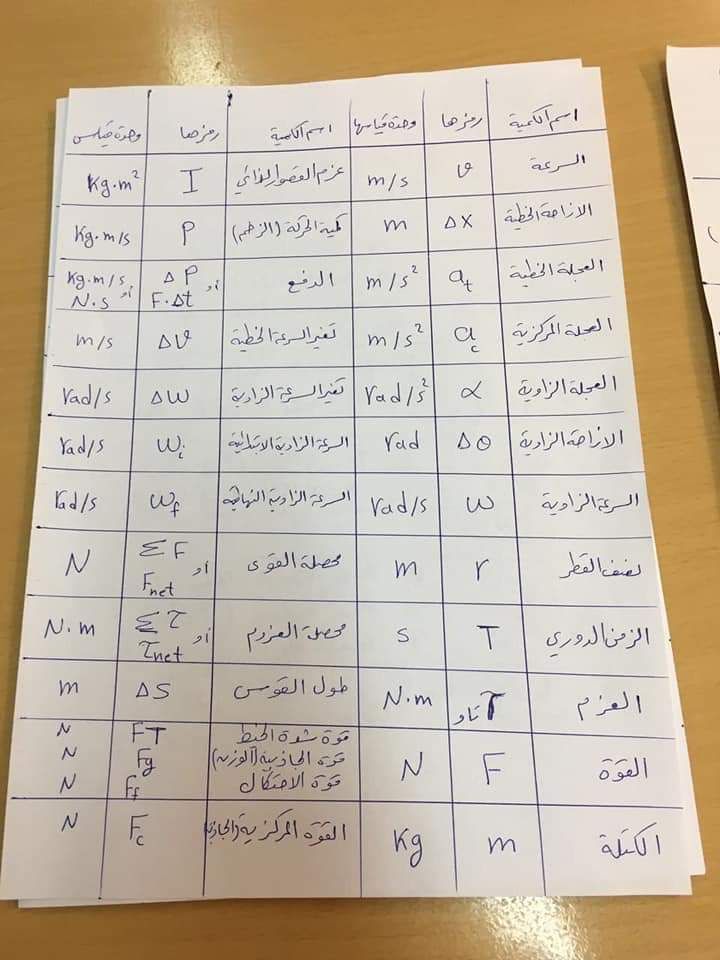 اسم الكمية رمزها وحدة قياسها اسم الكمية رمزها وحدة قياس
السرعة v m/s عزم القصور الذاتي I Kg.m²
الازاحة الخطية Δx m كمية الحركة (الزخم) P Kg.m/s
العجلة الخطية at m/s² الدفع ΔP أو F.Δt Kg.m/s أو N.s
العجلة المركزية ac m/s² تغير السرعة الخطية Δv m/s
العجلة الزاوية α rad/s² تغير السرعة الزاوية Δw rad/s
الازاحة الزاوية Δθ rad السرعة الزاوية الابتدائية wi rad/s
السرعة الزاوية w rad/s السرعة الزاوية النهائية wf rad/s
نصف القطر r m محصلة القوى ΣF أو Fnet N
الزمن الدوري T s محصلة العزوم Στ أو τnet N.m
العزم τ تاو N.m طول القوس ΔS m
القوة F N قوة شدة الخيط FT N
قوة الجاذبية (الوزن) Fg N
قوة الاحتكاك Ff N
الكتلة m Kg القوة المركزية (الجاذبة) Fc N